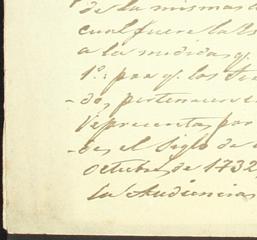 de la mismas
cual fuere la
a la medida, q.
1.º: para q. los
do, pertenecen
representa, por
es, el siglo de
octubre, de 1732,
la Audiencia